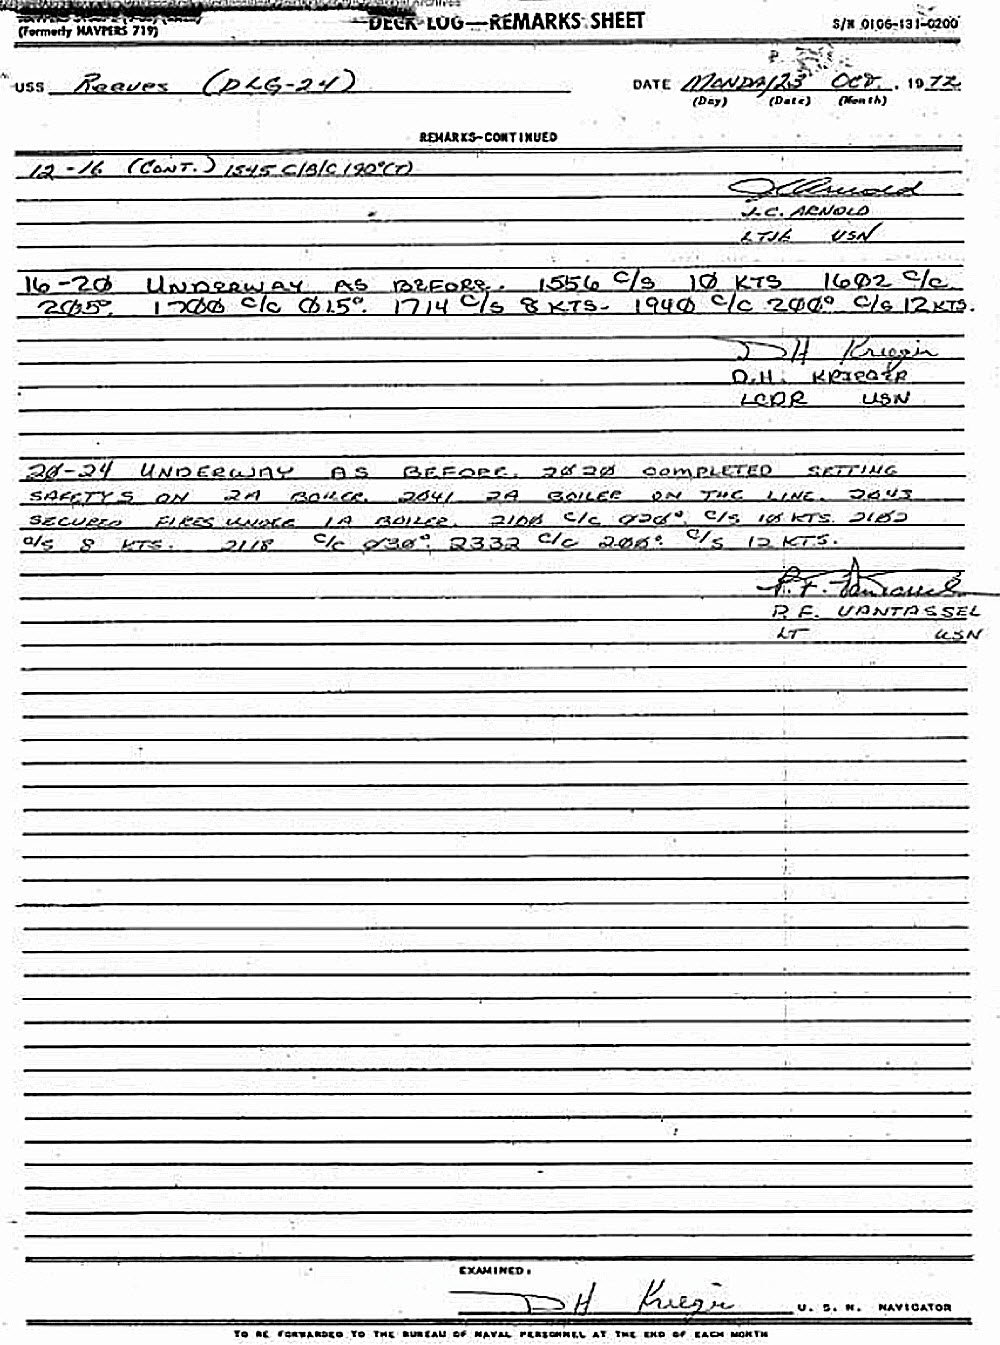 (Formerly NAVPERS 719)
DECK LOG—REMARKS SHEET
S/N 0106-131-0200
USS Reeves (DLG-24)
DATE MONDAY 23 OCT. , 19 72
(Day) (Date) (Month)
REMARKS-CONTINUED
12-16 (CONT.) 1545 C/B/C 190°(T)
J.C. ARNOLD
LTJG USN
16-20 UNDERWAY AS BEFORE. 1556 C/S 10 KTS 1602 C/C
205°. 1700 C/C 015°. 1714 C/S 8 KTS. 1940 C/C 200° C/S 12 KTS.
DH Krieger
D.H. KRIEGER
LCDR USN
20-24 UNDERWAY AS BEFORE. 2020 COMPLETED SETTING
SAFETYS ON 2A BOILER. 2041 2A BOILER ON THE LINE. 2043
SECURED FIRES UNDER 1A BOILER. 2100 C/C 020°. C/S 10 KTS. 2102
C/S 8 KTS. 2118 C/C 030°. 2332 C/C 200°. C/S 12 KTS.
R.F. Vantassel
R.F. VANTASSEL
LT USN
EXAMINED:
DH Krieger
U. S. N. NAVIGATOR
TO BE FORWARDED TO THE BUREAU OF NAVAL PERSONNEL AT THE END OF EACH MONTH